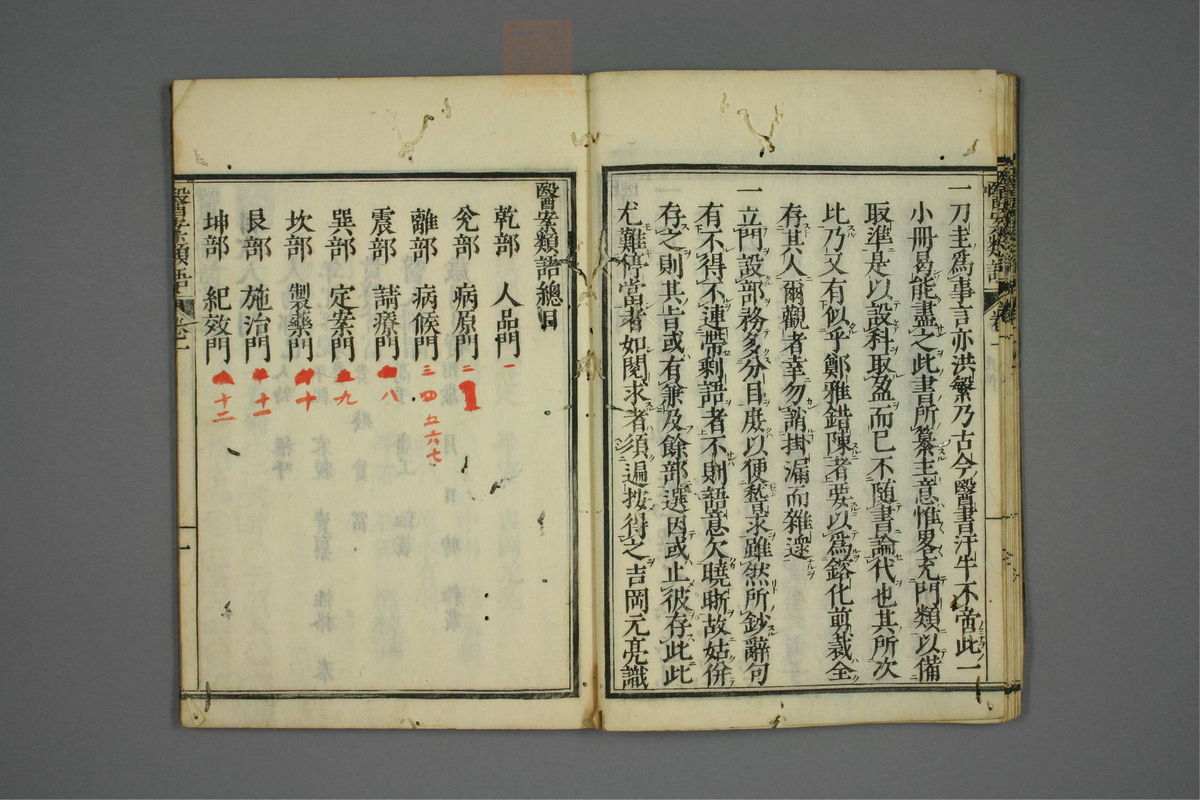 一刀圭爲事言亦洪繁乃古今醫書汗牛不啻此一
小冊曷能盡之此書所纂主意惟畧充門類以備
取準是以設科取盈而已不随書論代也其所次
比乃又有似乎鄭雅錯陳者要以爲鎔化剪裁全
存其人爾觀者幸勿誚掛漏而雜還
一立門設部務多分目庶以便嵆求雖然所鈔辭句
有不得不連帶剩語者不則語意欠曉晰故姑併
存之則其旨或有兼及餘部選因或止彼存此此
尤難停當者如閱求者須遍按得之吉岡元亮識
醫案類語總目
乾部 人品門 一
兊部 病原門 二
離部 病候門 三四五六七
震部 請療門 八
巽部 定案門 九
坎部 製藥門 十
艮部 施治門 十一
坤部 紀效門 十二
醫案類語 卷一 一